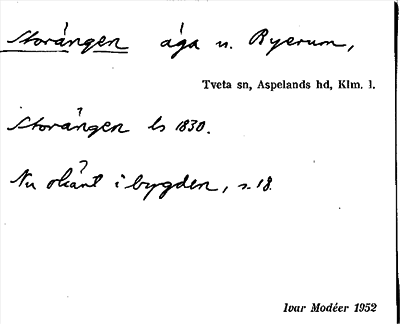 Storängen äga u. Ryerum,
Tveta sn, Aspelands hd, Klm. l.
?
Storängen ls 1830.
?
Nu okänt i bygden, s. 18.
Ivar Modéer 1952